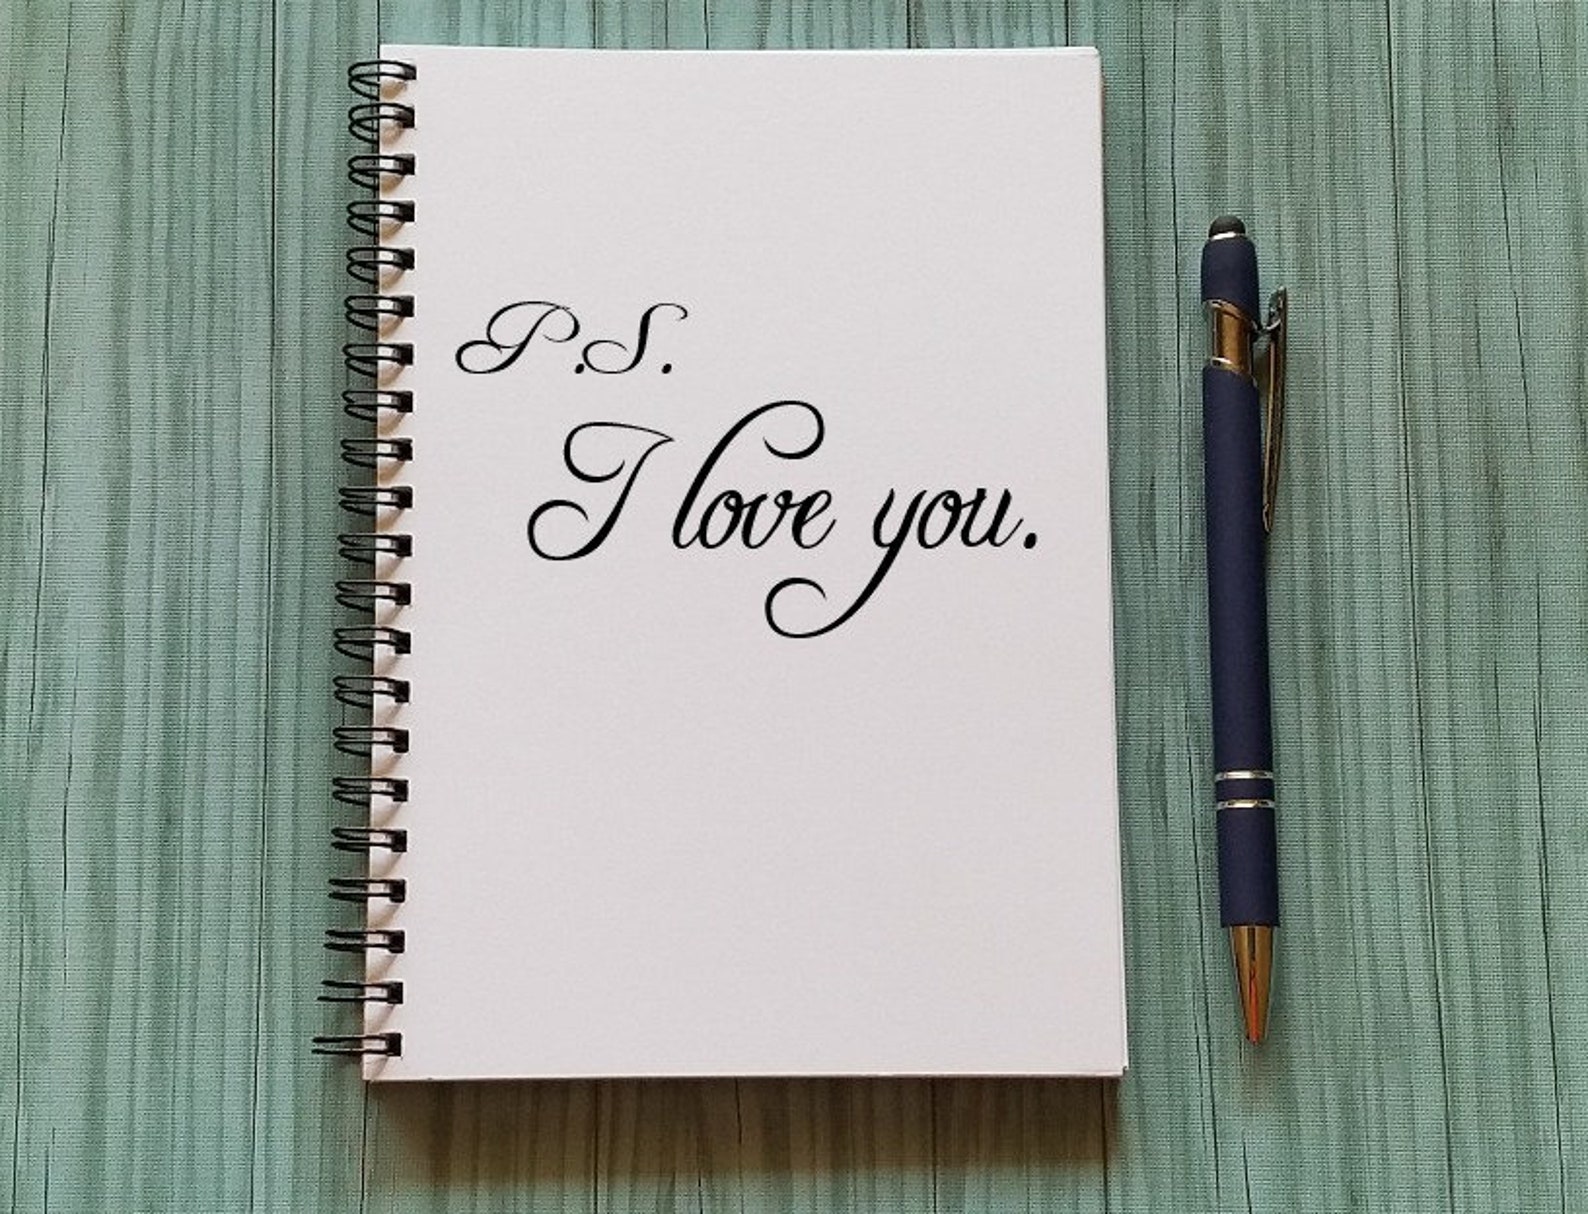 P.S.
I love you.